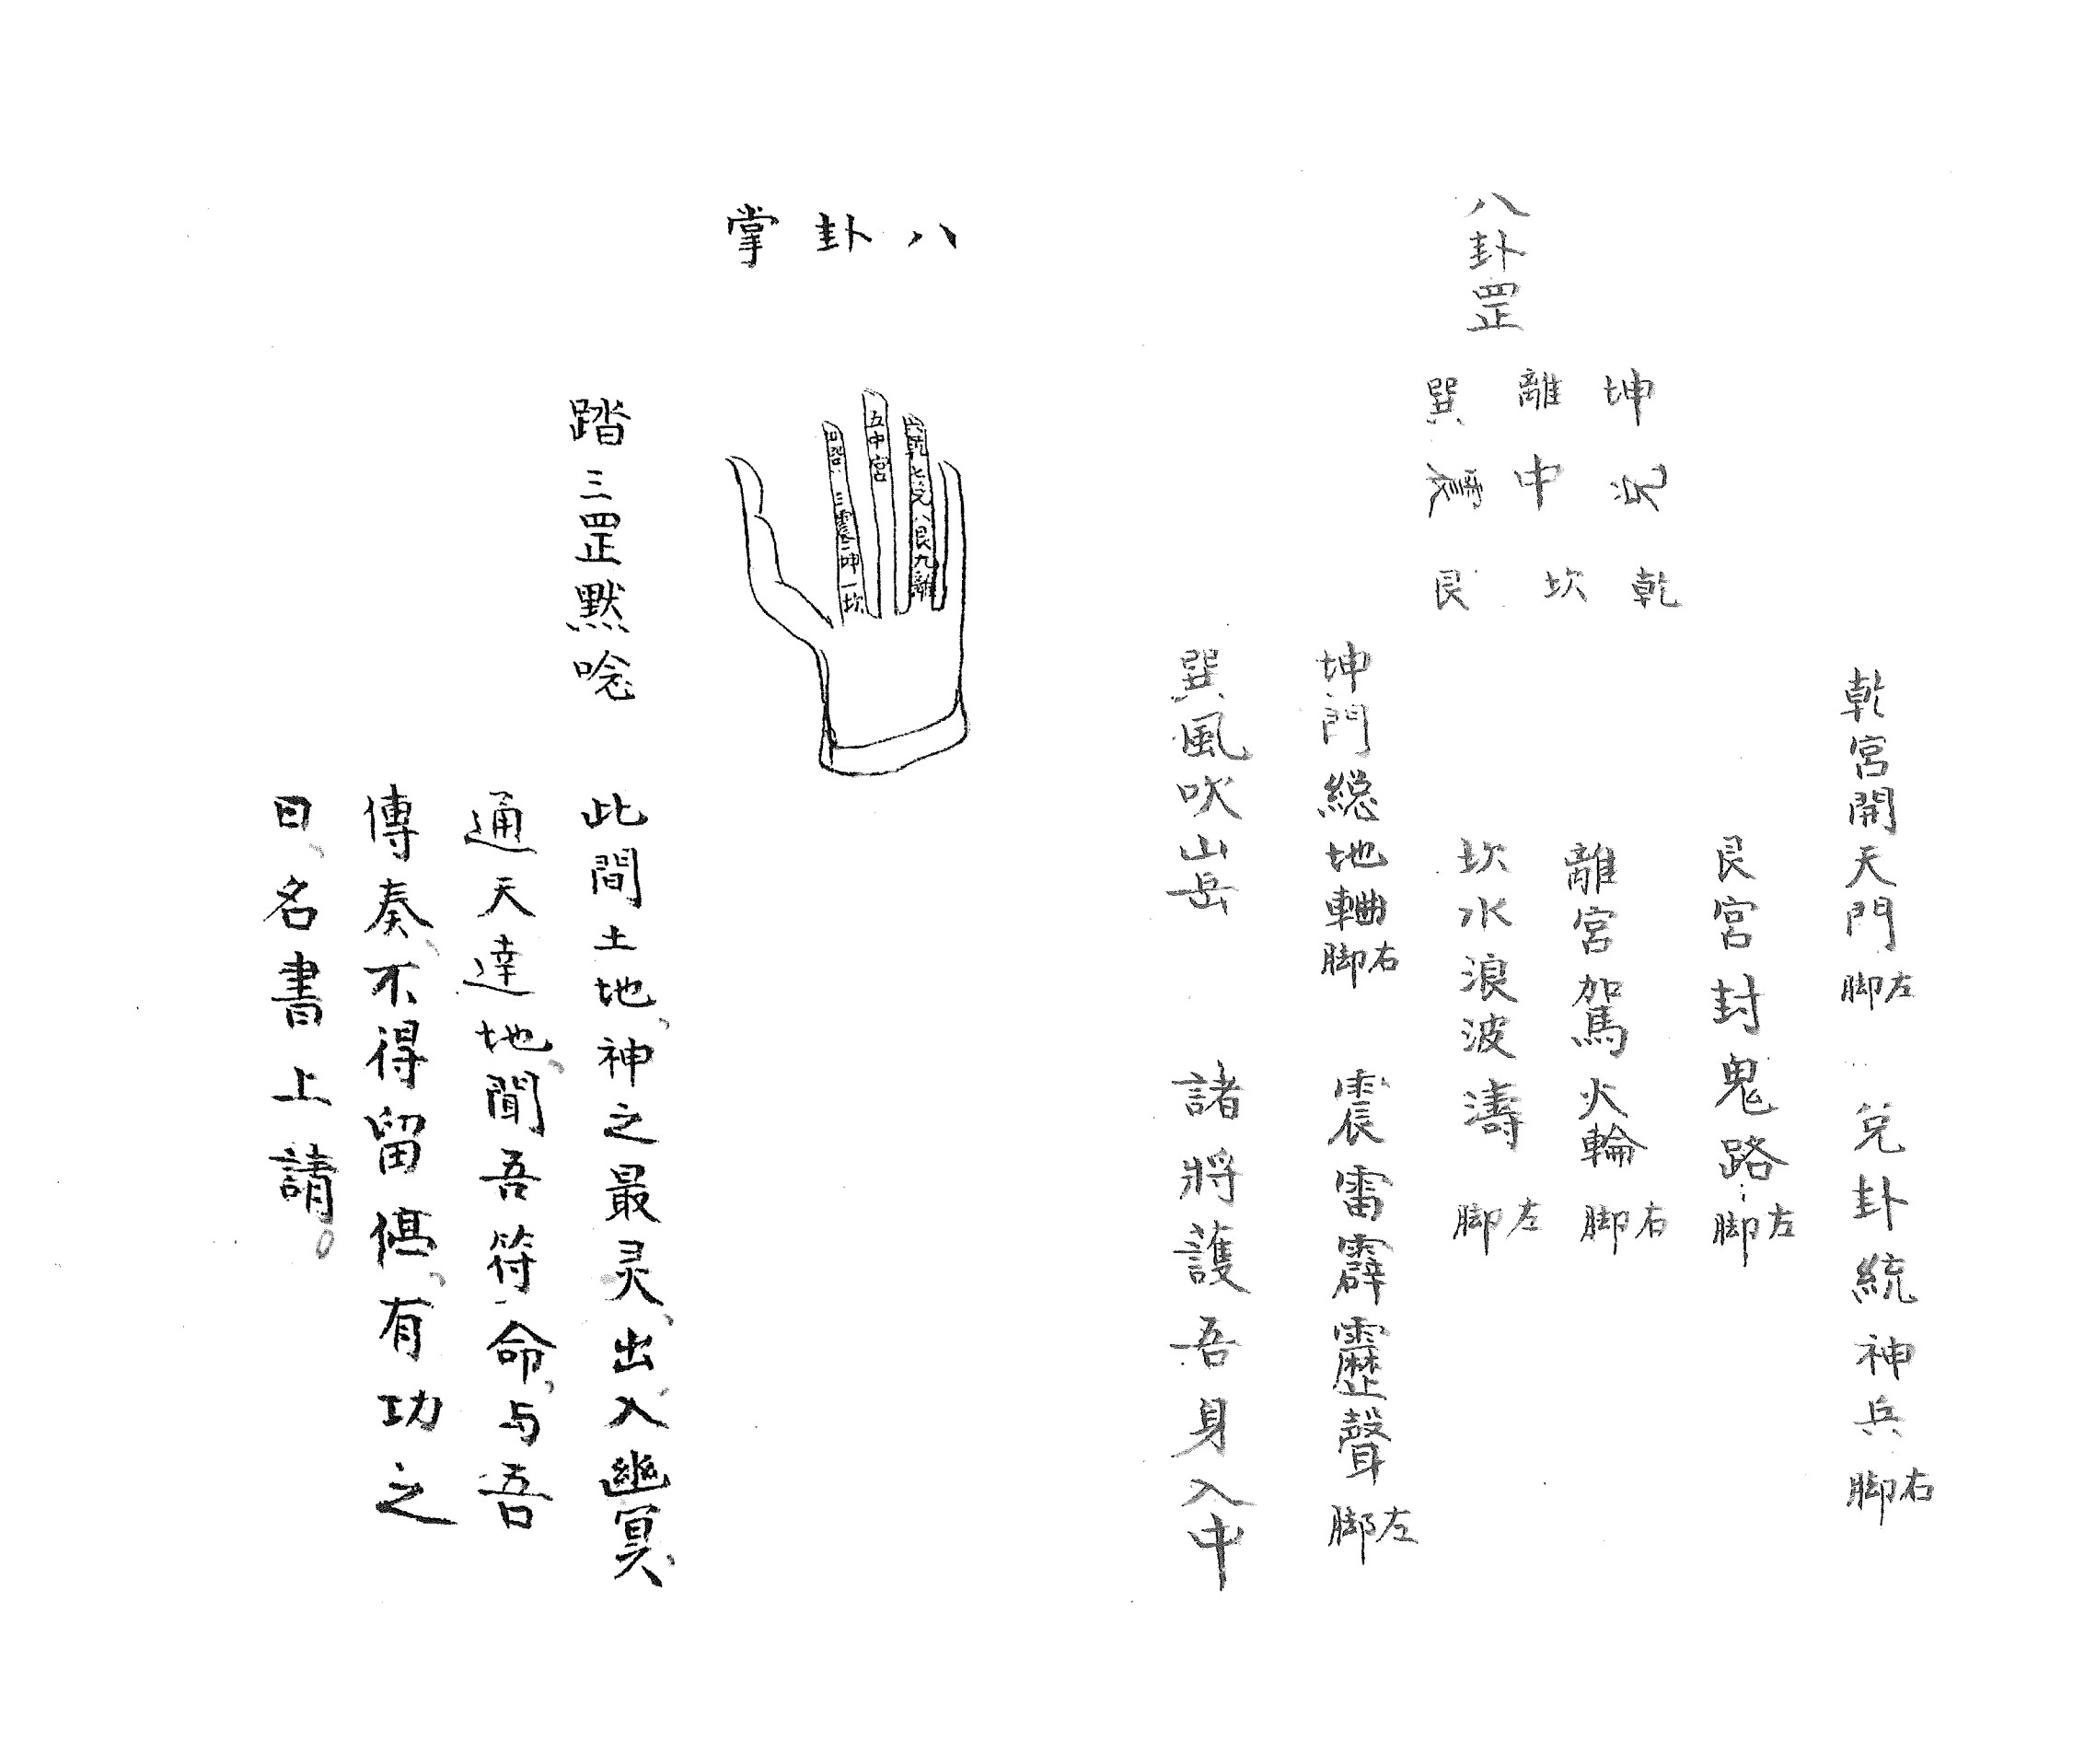 八卦罡
坤離巽
兌中震
乾坎艮
乾宮開天門左脚 兌卦統神兵右脚
艮宮封鬼路左脚
離宮駕火輪右脚
坎水浪波濤左脚
坤門総地軸右脚 震雷霹靂聲左脚
巽風吹山岳 諸將護吾身入中
八卦掌
六乾七兌八艮九離
五中宮
三震二坤一坎
踏三罡黙唸
此間土地、神之最灵、出入幽冥、
通天達地、聞吾符命、与吾
傳奏、不得留停、有功之
日、名書上請。